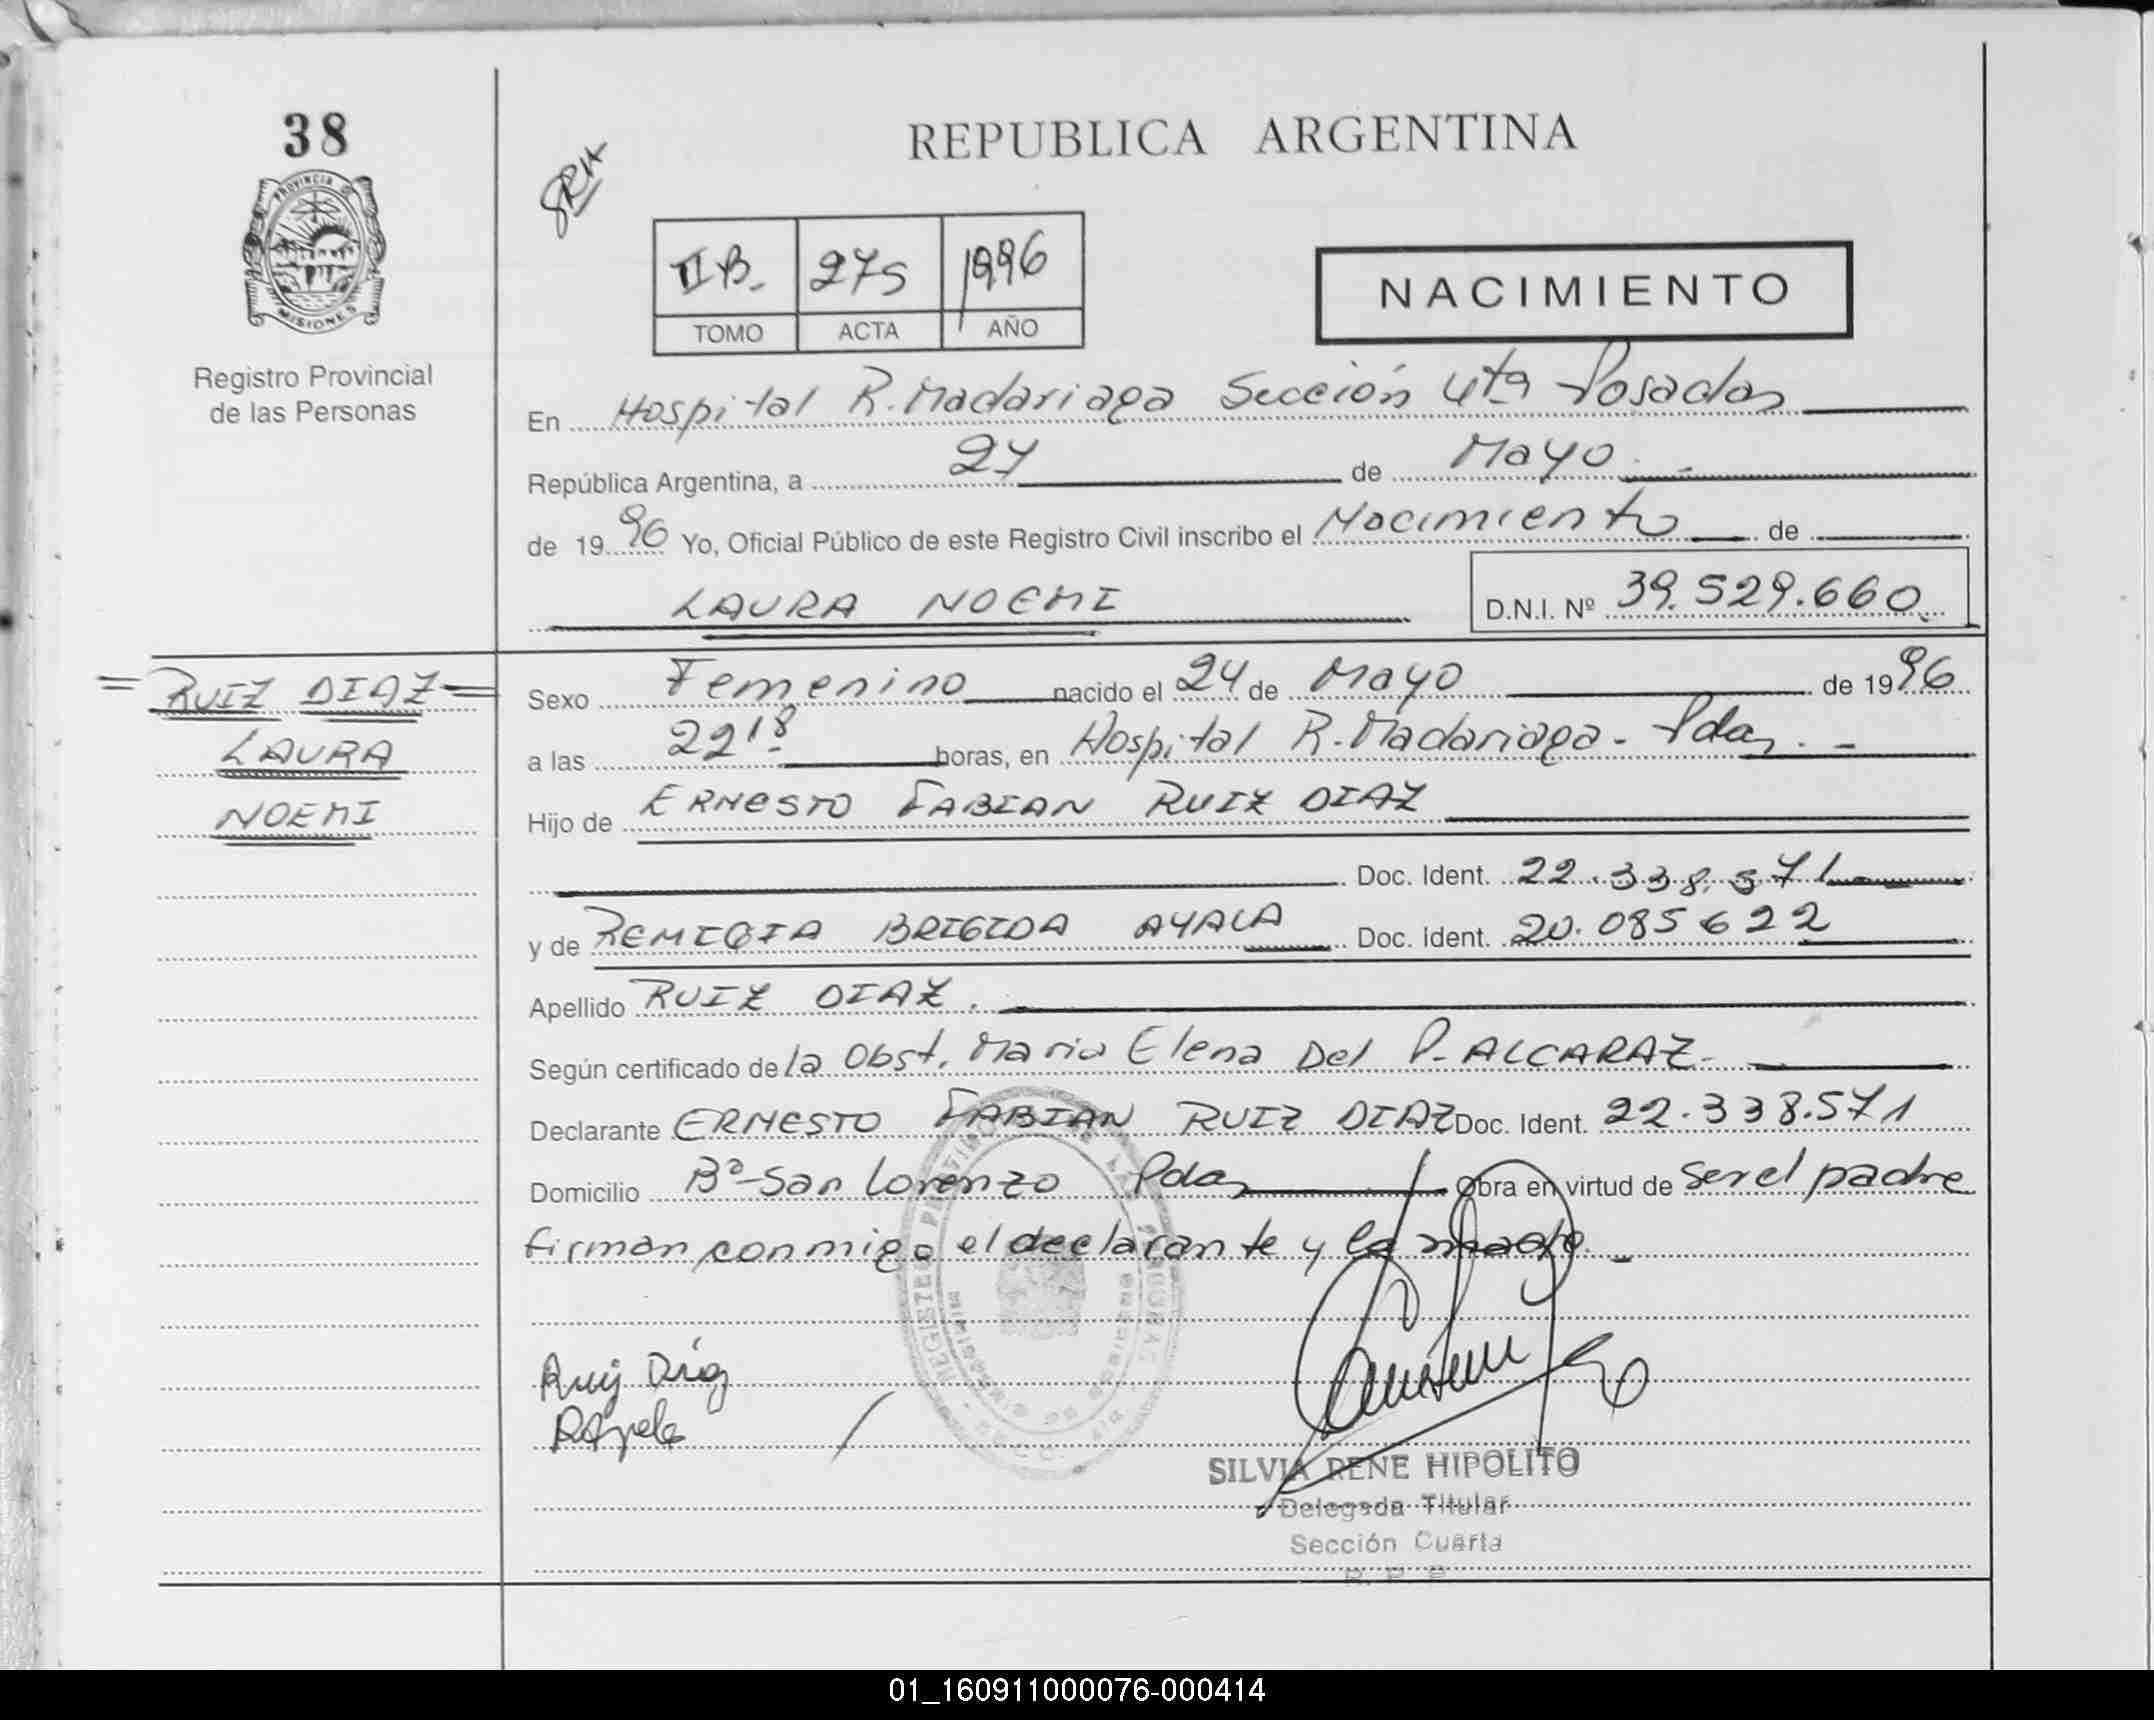 38
PROVINCIA
MISIONES
Registro Provincial
de las Personas
SRH
REPUBLICA ARGENTINA
II B. 275 1996
TOMO ACTA AÑO
NACIMIENTO
En Hospital R. Madariaga Sección 4ta Posadas
República Argentina, a 27 de Mayo
de 1996 Yo, Oficial Público de este Registro Civil inscribo el Nacimiento de
LAURA NOEMI
D.N.I. Nº 39.529.660
= RUIZ DIAZ =
LAURA
NOEMI
Sexo Femenino nacido el 24 de Mayo de 1996
a las 22 18 horas, en Hospital R. Madariaga - Pdas. -
Hijo de ERNESTO FABIAN RUIZ DIAZ
Doc. Ident. 22.338.571
y de REMIGIA BRIGIDA AYALA Doc. Ident. 20.085622
Apellido RUIZ DIAZ.
Según certificado de la Obst. Maria Elena Del P. ALCARAZ
Declarante ERNESTO FABIAN RUIZ DIAZ Doc. Ident. 22.338.571
Domicilio Bº San Lorenzo Pdas Obra en virtud de ser el padre
firman conmigo el declarante y la madre. -
Ruiz Díaz
RAyala
SILVIA RENE HIPOLITO
Delegada Titular
Sección Cuarta
R. P. P.
01_160911000076-000414